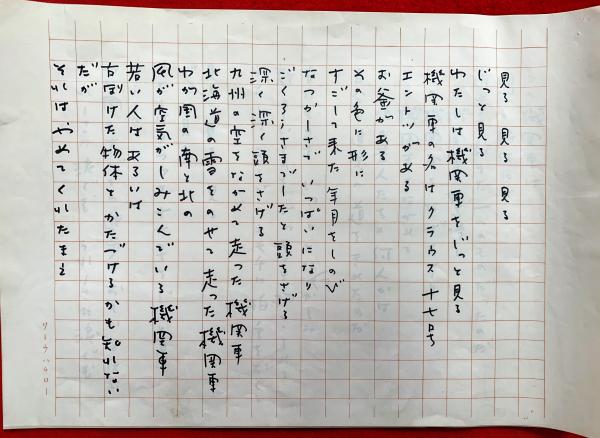 見る 見る 見る
じっと見る
わたしは機関車をじっと見る
機関車の名はクラウス十七号
エントツがある
お釜がある
その色に形に
すごして来た年月をしのび
なつかしさでいっぱいになり
ごくろうさまでしたと頭をさげる
深く深く頭をさげる
九州の空をながめて走った機関車
北海道の雪をのせて走った機関車
わが国の南と北の
風が空気がしみこんでいる機関車
若い人はあるいは
古ぼけた物体とかたづけるかも知れない
だが
それはやめてくれたまえ